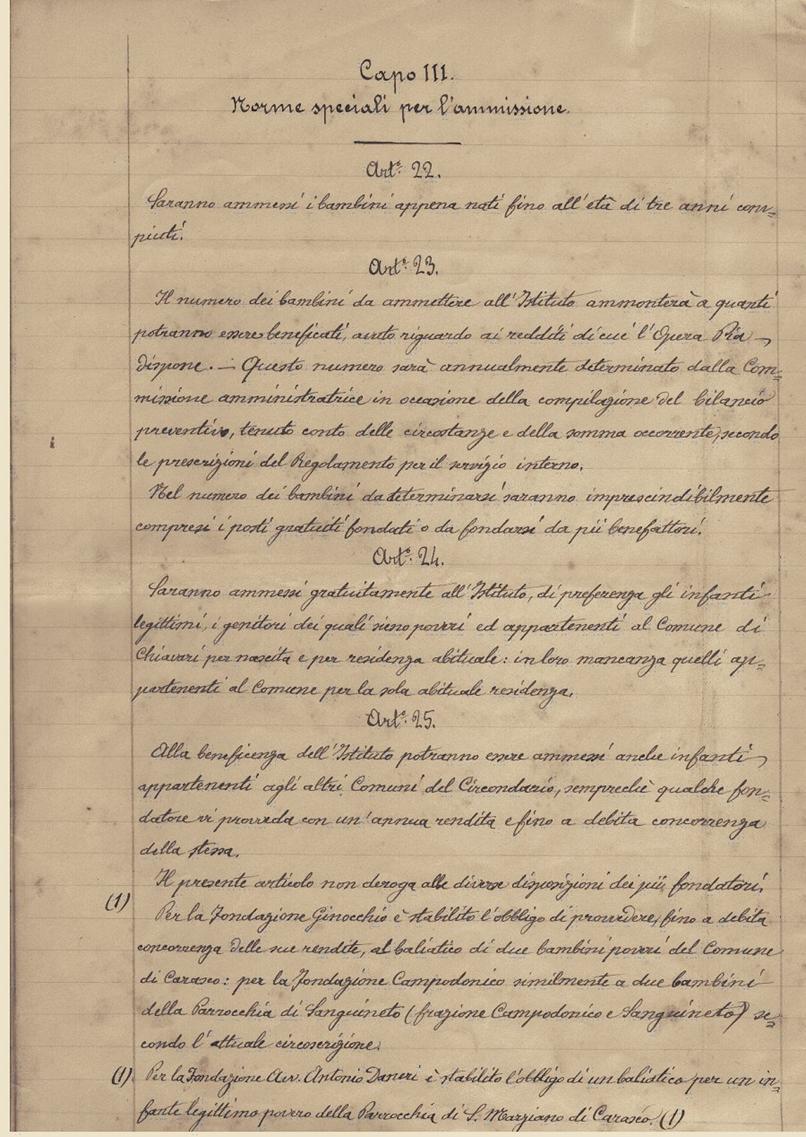 Capo III.
Norme speciali per l'ammissione.
Art.º 22.
Saranno ammessi i bambini appena nati fino all'età di tre anni com=
piuti.
Art.º 23.
Il numero dei bambini da ammettere all'Istituto ammonterà a quanti
potranno essere beneficati, avuto riguardo ai redditi di cui l'Opera Pia
dispone. — Questo numero sarà annualmente determinato dalla Com=
missione amministratrice in occasione della compilazione del bilancio
preventivo, tenuto conto delle circostanze e della somma occorrente, secondo
le prescrizioni del Regolamento per il servizio interno.
Nel numero dei bambini da determinarsi saranno imprescindibilmente
compresi i posti gratuiti fondati o da fondarsi da più benefattori.
Art.º 24.
Saranno ammessi gratuitamente all'Istituto, di preferenza gli infanti
legittimi, i genitori dei quali sieno poveri ed appartenenti al Comune di
Chiavari per nascita e per residenza abituale: in loro mancanza quelli ap=
partenenti al Comune per la sola abituale residenza.
Art.º 25.
Alla beneficenza dell'Istituto potranno essere ammessi anche infanti
appartenenti agli altri Comuni del Circondario, sempreché qualche fon=
datore vi provveda con un'annua rendita e fino a debita concorrenza
della stessa.
Il presente articolo non deroga alle diverse disposizioni dei pii fondatori.
(1) Per la Fondazione Ginocchio è stabilito l'obbligo di provvedere, fino a debita
concorrenza delle sue rendite, al baliatico di due bambini poveri del Comune
di Carasco: per la Fondazione Campodonico similmente a due bambini
della Parrocchia di Sanguineto (frazione Campodonico e Sanguineto) se=
condo l'attuale circoscrizione.
(1) Per la Fondazione Avv. Antonio Daneri è stabilito l'obbligo di un baliatico per un in=
fante legittimo povero della Parrocchia di S. Marziano di Carasco. (1)